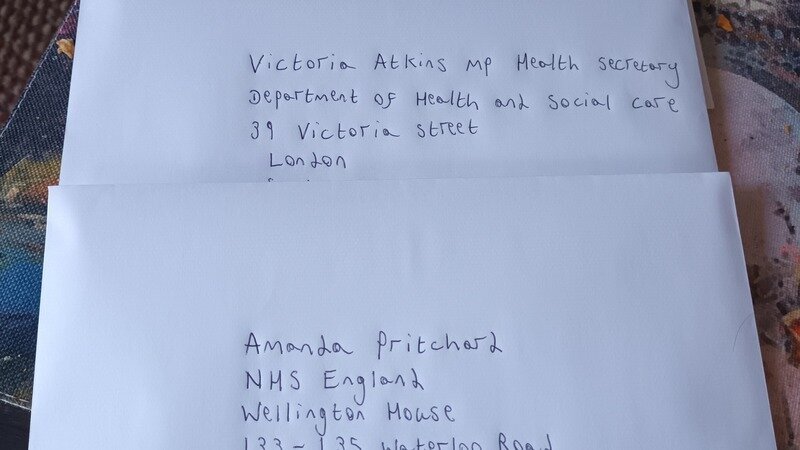 Victoria Atkins MP Health Secretary
Department of Health and Social Care
39 Victoria Street
London
Amanda Pritchard
NHS England
Wellington House
133-135 Waterloo Road